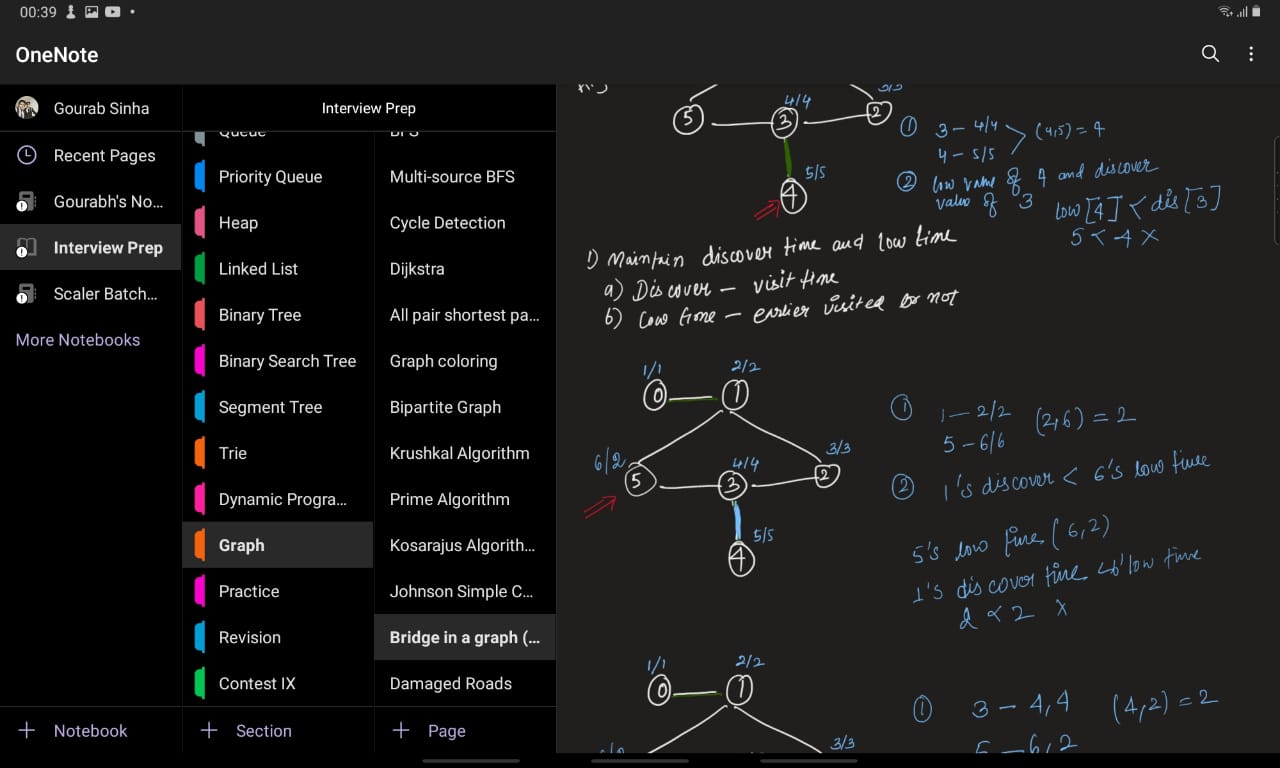 00:39
OneNote
Gourab Sinha
Recent Pages
Gourabh's No...
Interview Prep
Scaler Batch...
More Notebooks
+ Notebook
Interview Prep
Queue
Priority Queue
Heap
Linked List
Binary Tree
Binary Search Tree
Segment Tree
Trie
Dynamic Progra...
Graph
Practice
Revision
Contest IX
+ Section
BFS
Multi-source BFS
Cycle Detection
Dijkstra
All pair shortest pa...
Graph coloring
Bipartite Graph
Krushkal Algorithm
Prime Algorithm
Kosarajus Algorith...
Johnson Simple C...
Bridge in a graph (...
Damaged Roads
+ Page
3/3
4/4
5 3 2
5/5
4
① 3 - 4/4
4 - 5/5 > (4,5) = 4
② low value of 4 and discover
value of 3
low [4] < dis [3]
5 < 4 X
1) Maintain discover time and low time
a) Discover - visit time
b) Low time - earlier visited or not
1/1 2/2
0 1
6/2 4/4 3/3
5 3 2
5/5
4
① 1 - 2/2
5 - 6/6 (2,6) = 2
② 1's discover < 6's low time
5's low time (6,2)
1's discover time < 6' low time
2 < 2 X
1/1 2/2
0 1
3/3
① 3 - 4,4 (4,2) = 2
5 - 6,2